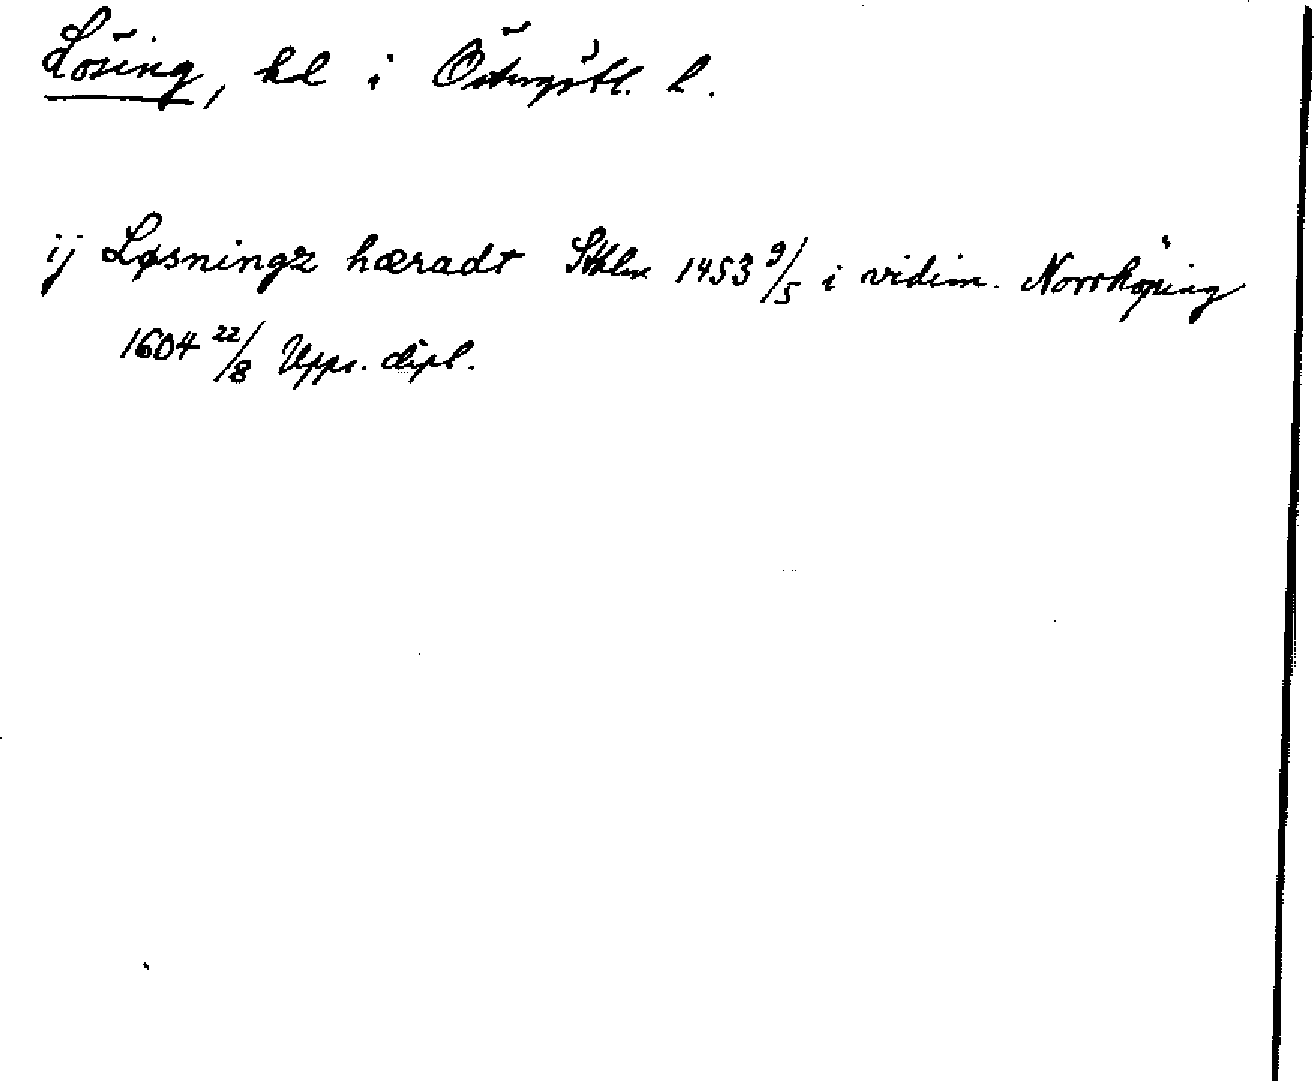 Lösing, hd i Östergötl. l.
ij Løsningz hæradt Sthlm 1453 9/5 i vidim. Norrköping
1604 22/8 Upps. dipl.